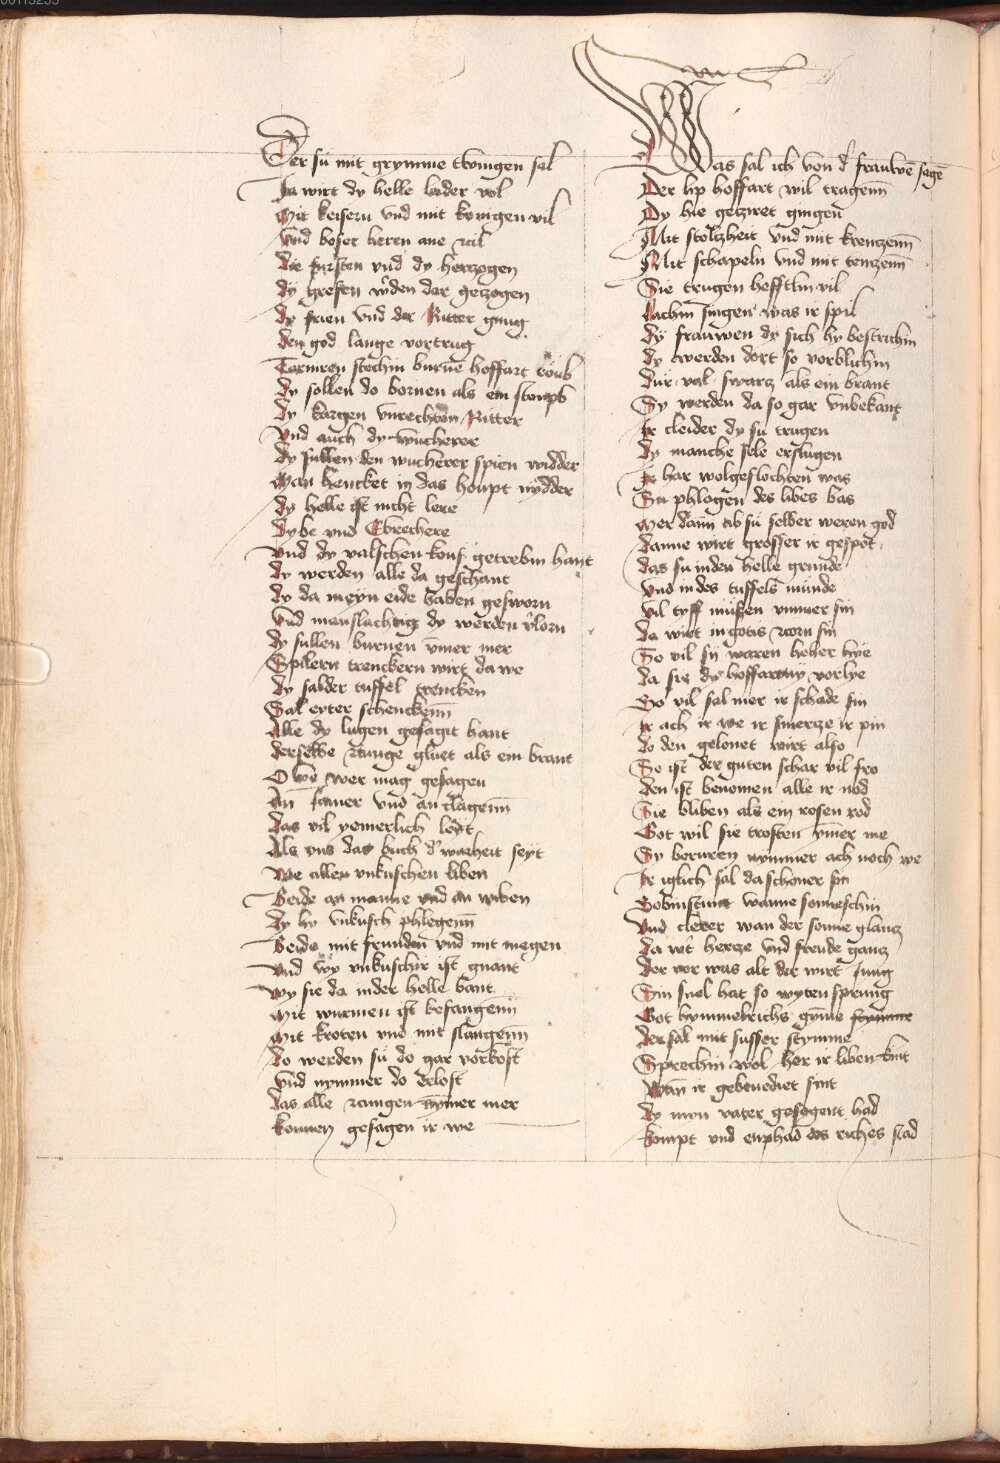 Der su mit grymme twingen sal
Ja wirt dy helle lader vol
Mit keisern vnd mit konigen vil
Vnd boser herrn ane zil
Die fursten vnd dy herzogen
dy grefen w'den dar getzogen
dy frien vnd der Ritter gnug
den god lange vortrug
stechin burne hoffart
dy sollen do bornen als ein
dy kargen vnrechten Ritter
Vnd auch dy wucherer
dy sullen den wucherer spien widder
Man hencket in das houpt nydder
dy helle ist nicht lere
Dybe vnd Ebrechere
Vnd dy valschen kouf getrebin hant
dy werden alle da geschant
dy da meyn eide haben gesworn
Vnd manslachtig dy werden v'lorn
dy sullen burnen ymer mer
Spilern trenckern wirt da we
dy sal der tuffel trencken
Gal eyter schenckenn
Alle dy lugen gesagit hant
derselbe zunge gluet als ein brant
O we wer mag gesagen
An iamer vnd an clagenn
das vil yemerlich
Als vns das buch d' warheit seyt
We allen vnkuschen liben
Beide an manne vnd an wiben
dy hy vnkusch phlegenn
Beide mit frunden vnd mit megen
Vnd wy vnkuschir ist gnant
wy sie da in der helle bant
Mit wurmen ist befangenn
Mit kroten vnd mit slangenn
do werden su do gar vorkost
Vnd nymmer do erlost
das alle zungen nymer mer
konnen gesagen ir we
Was sal ich von d' frauwe sage
Der lip hoffart wil tragenn
Dy hie getzyret gingen
Mit stoltzheit vnd mit krentzenn
Mit schapeln vnd mit tentzenn
Sie trugen hefftlin vil
Lachin singen was ir spil
dy frauwen dy sich hy bestrichin
dy werden dort so vorblichin
dur val swartz als ein brant
Sy werden da so gar vnbekant
Ir cleider dy su trugen
dy manche sele erslugen
Ir har wolgeflochten was
Sin phlogen des libes bas
Wer dann ab su selber weren god
danne wirt grosser ir gespot
das su in den helle grunde
Vnd in des tuffels munde
Vil tyff mussen ymmer sin
da wirt in gotis zorn sin
So vil sy waren hoher hye
da sie dy hoffart vorlye
So vil sal mer ir schade sin
Ir ach ir we ir smertze ir pin
do den gelonet wirt also
So ist der guten schar vil fro
den ist benomen alle ir nod
Sie bliben als ein rosen rod
Got wil sie trosten ymer me
Sy beruren nymmer ach noch we
Ir iglich sal da schoner sin
wanne sonneschin
Vnd clerer wan der sonne glantz
da w't hertze vnd freude gantz
der vor was alt der wirt jung
Sin snel hat so wyten sprung
Got hymmelrichs gymme stymme
der sal mit susser stymme
Sprechin wol her ir liben kint
Wan ir gebenediet sint
dy myn vater gesegent had
kompt vnd enphad des riches stad